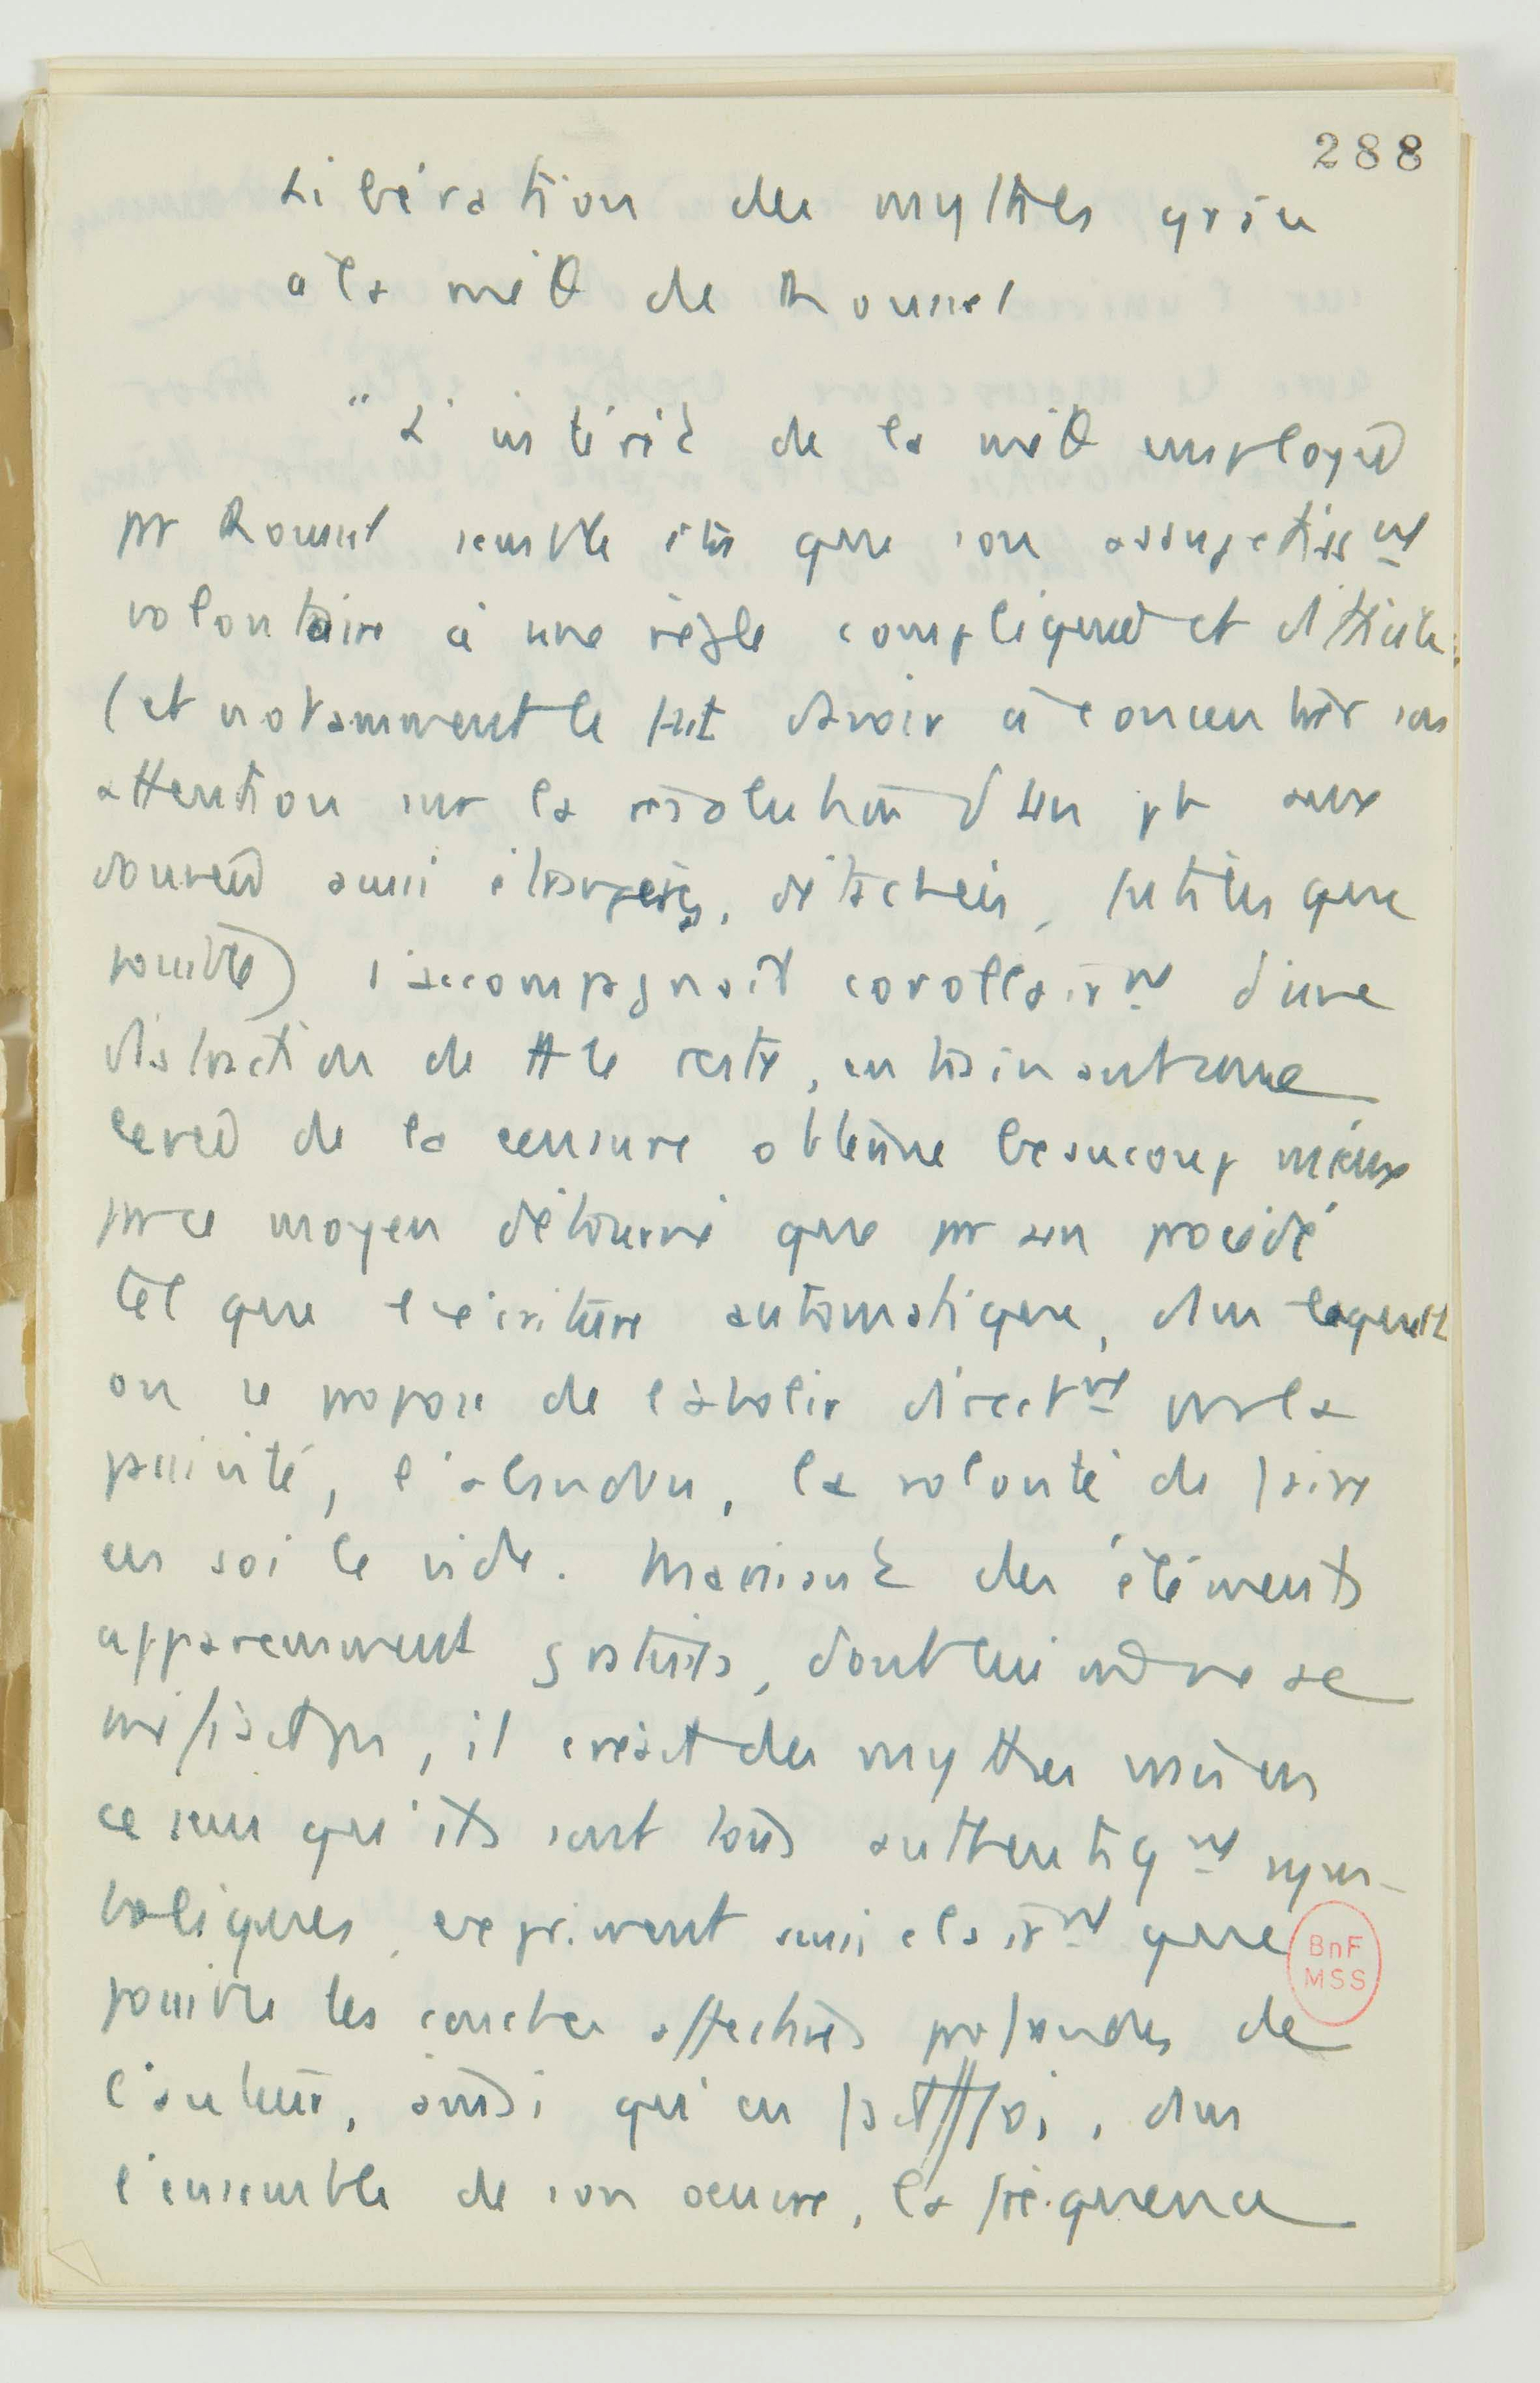 288
Libération des mythes grâce
à la méth de Roussel
"L'intérêt de la méth employée
pr Roussel semble être que son assujetissnt
volontaire à une règle compliquée et difficile
(et notamment le fait d'avoir à concentrer son
attention sur la résolution d'un pb aux
données aussi étrangères, détachées, futiles que
possible) s'accompagnait corollairnt d'une
distraction de tt le reste, entrainant une
levée de la censure obtenue beaucoup mieux
pr ce moyen détourné que pr un procédé
tel que l'écriture automatique, dans laquelle
on se propose de l'abolir directnt pr la
passivité, l'abandon, la volonté de faire
en soi le vide. Maniant des éléments
apparemment gratuits, dont lui même ne se
méfiait pas, il créait des mythes vrais en
ce sens qu'ils sont tous authentiqnt sym-
boliques, expriment aussi clairnt que
possible les couches affectives profondes de
l'auteur, ainsi qu'en fait foi, dans
l'ensemble de son oeuvre, la fréquence
BnF
MSS